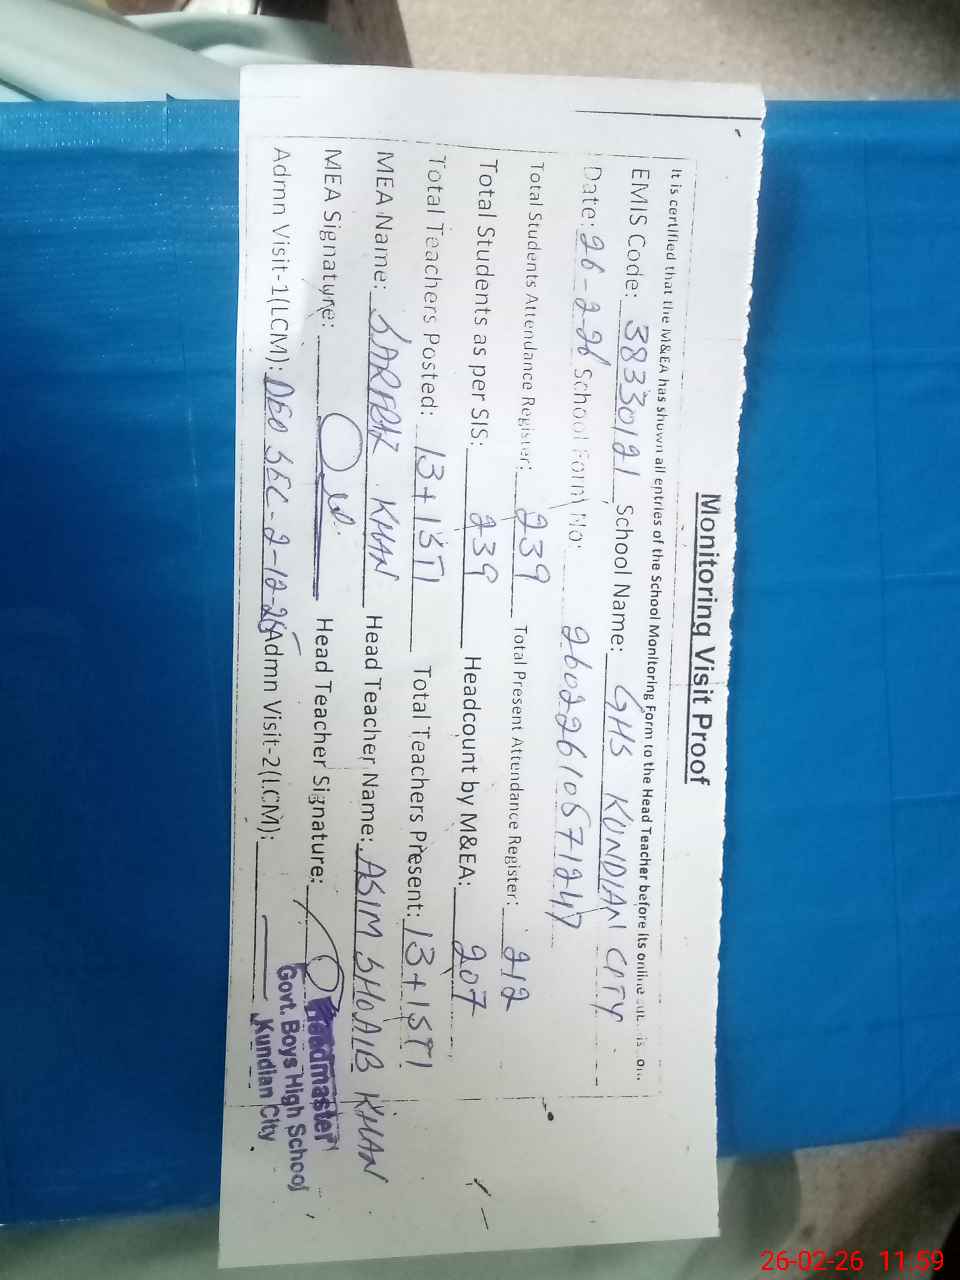 Monitoring Visit Proof
It is certified that the M&EA has shown all entries of the School Monitoring Form to the Head Teacher before its online
EMIS Code: 38330121 School Name: GHS KUNDIAN CITY
Date: 26-2-26 School Form No: 26022610571247
Total Students Attendance Register: 239 Total Present Attendance Register: 212
Total Students as per SIS: 239 Headcount by M&EA: 207
Total Teachers Posted: 13+1STI Total Teachers Present: 13+1STI
MEA Name: SARFRAZ KHAN Head Teacher Name: ASIM SHOAIB KHAN
MEA Signature: Head Teacher Signature:
Headmaster
Admn Visit-1(LCM): DEO SEC-2-12-26 Admn Visit-2(LCM):
Govt. Boys High School
Kundian City
26-02-26 11:59